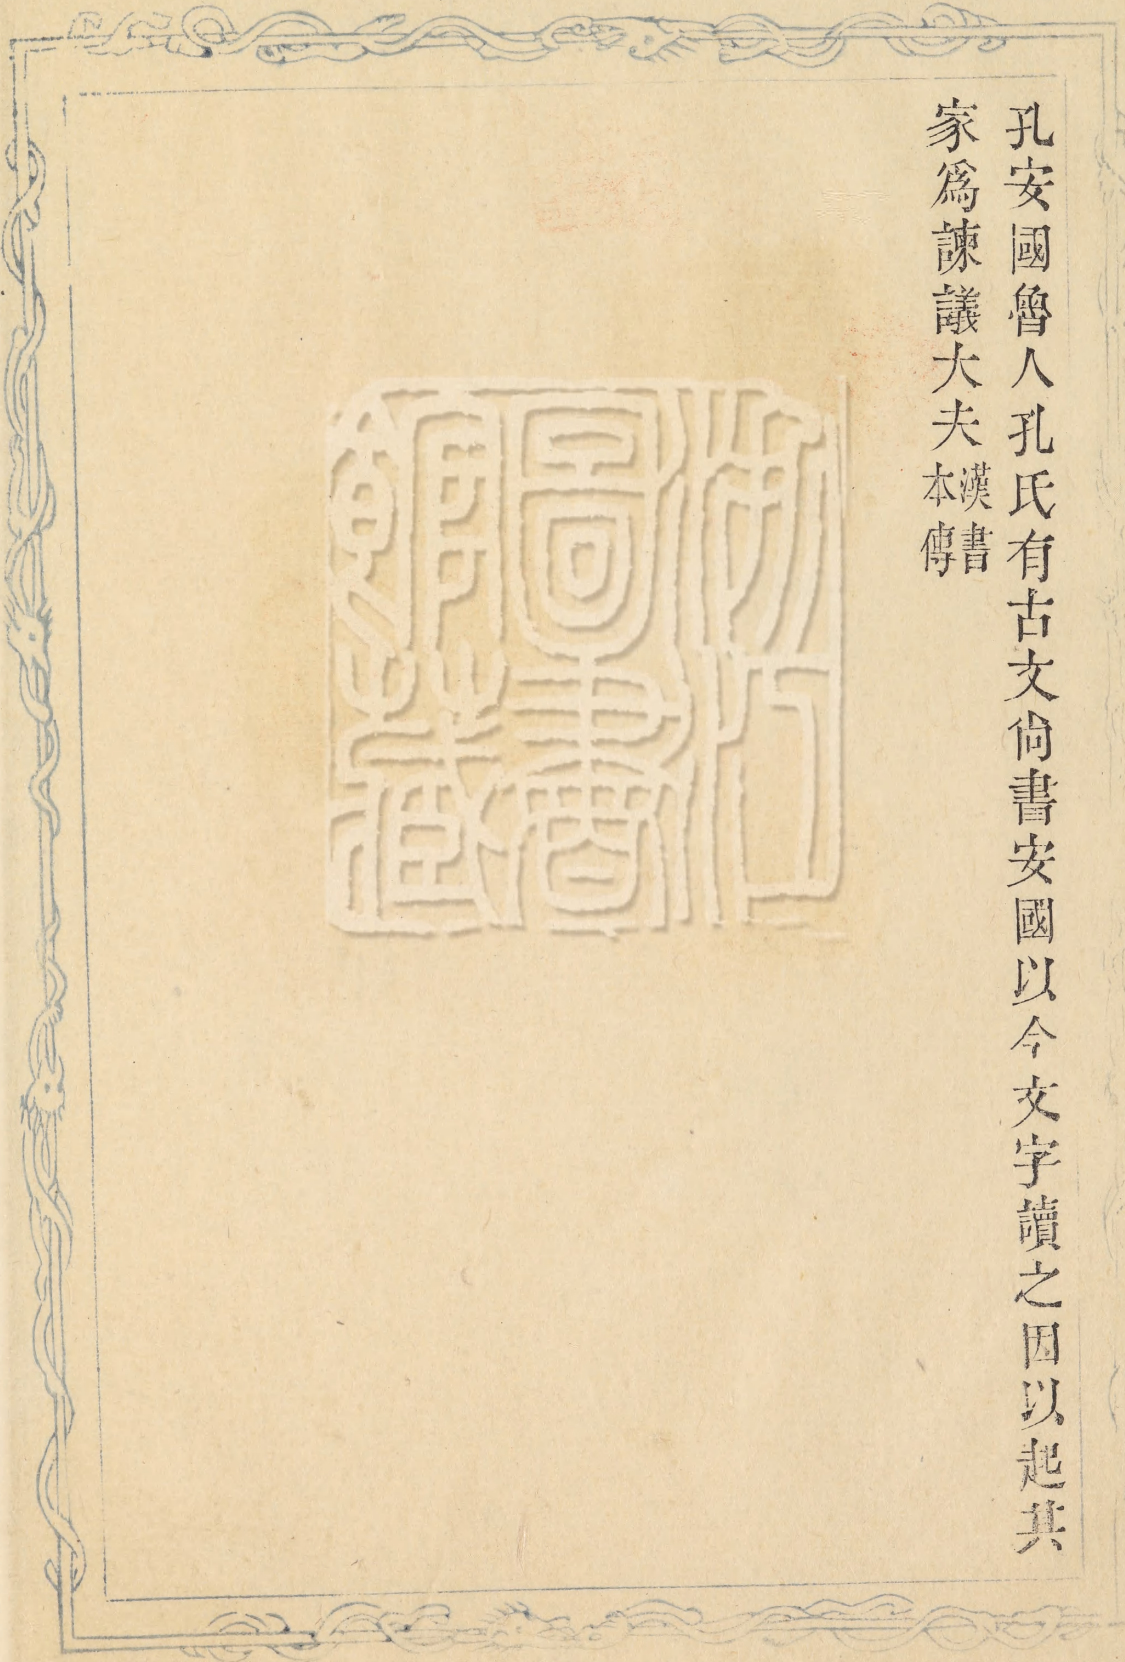 孔安國魯人孔氏有古文尚書安國以今文字讀之因以起其
家爲諫議大夫漢書
本傳
浙江
圖書
館藏